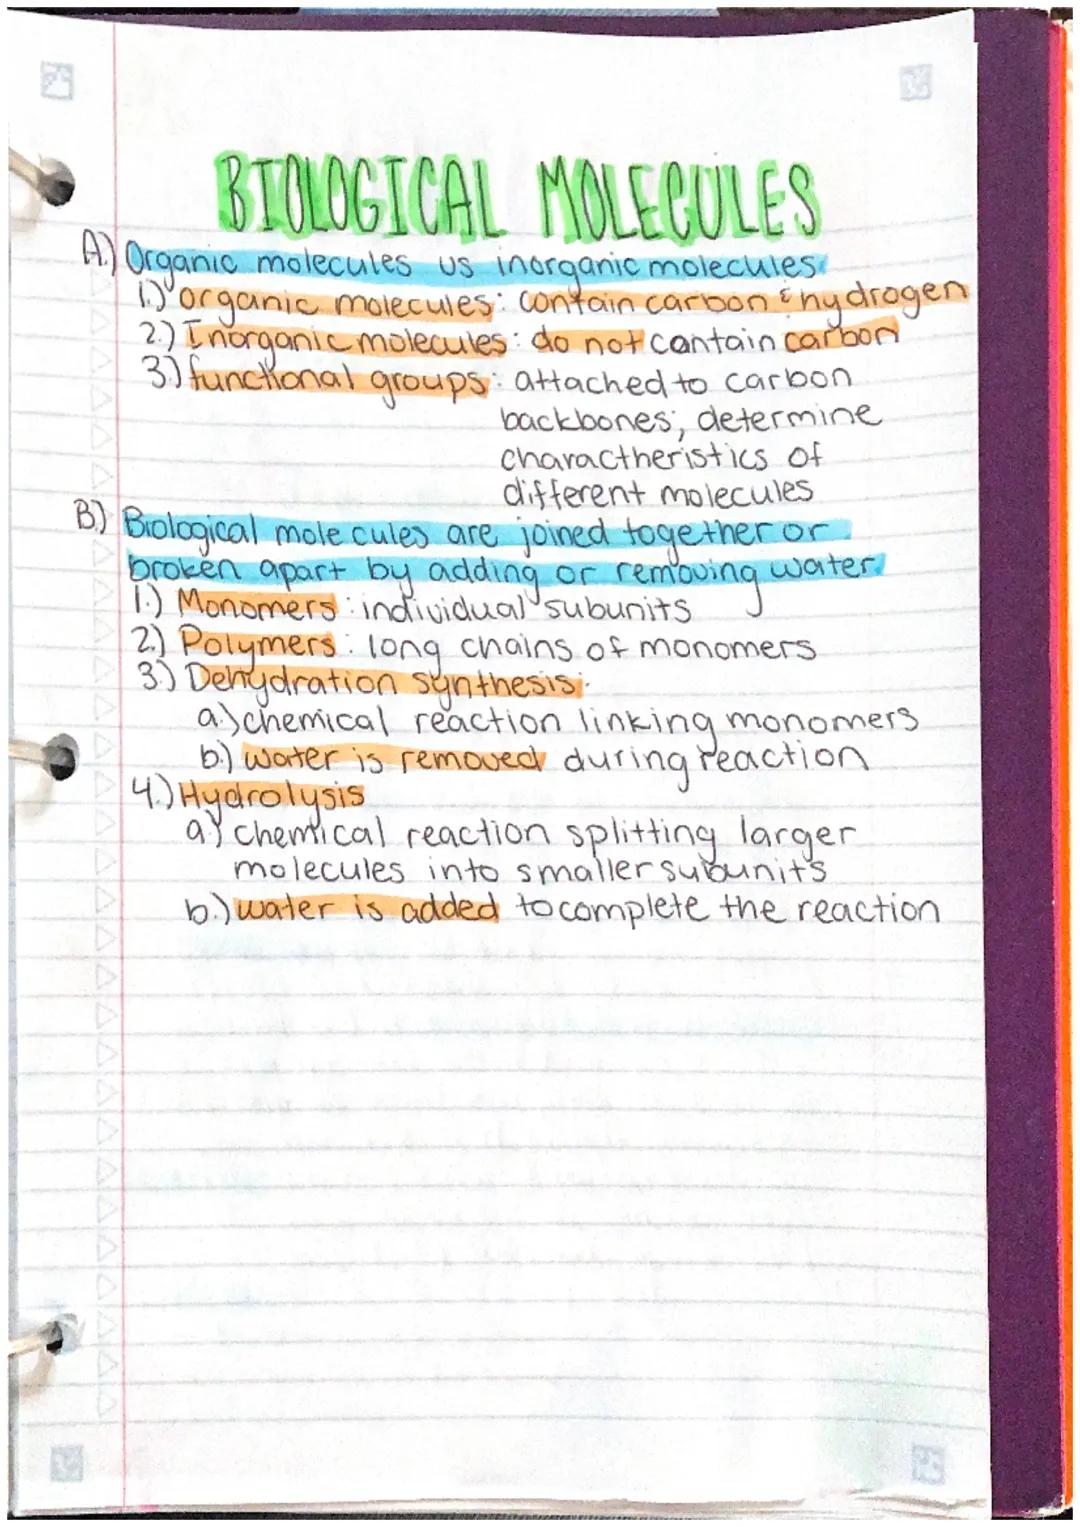 BIOLOGICAL MOLECULES
A.) Organic molecules vs inorganic molecules.
1.) organic molecules: contain carbon & hydrogen
2.) Inorganic molecules: do not contain carbon
3.) functional groups: attached to carbon
backbones; determine
charactheristics of
different molecules
B.) Biological molecules are joined together or
broken apart by adding or removing water.
1.) Monomers: individual subunits
2.) Polymers: long chains of monomers
3.) Dehydration synthesis:
a.) chemical reaction linking monomers
b.) water is removed during reaction
4.) Hydrolysis
a.) chemical reaction splitting larger
molecules into smaller subunits
b.) water is added to complete the reaction